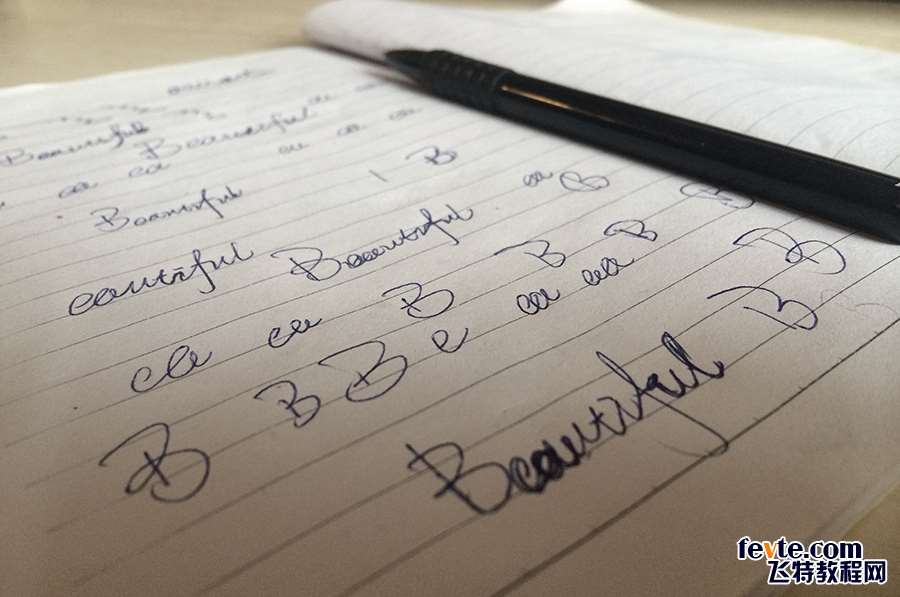 Beautiful Beautiful
ea ea ea ea ea
Beautiful B
eautiful Beautiful ea B
ea ea B B B B
B B B e ea ea B
Beautiful B
fevte.com
飞特教程网